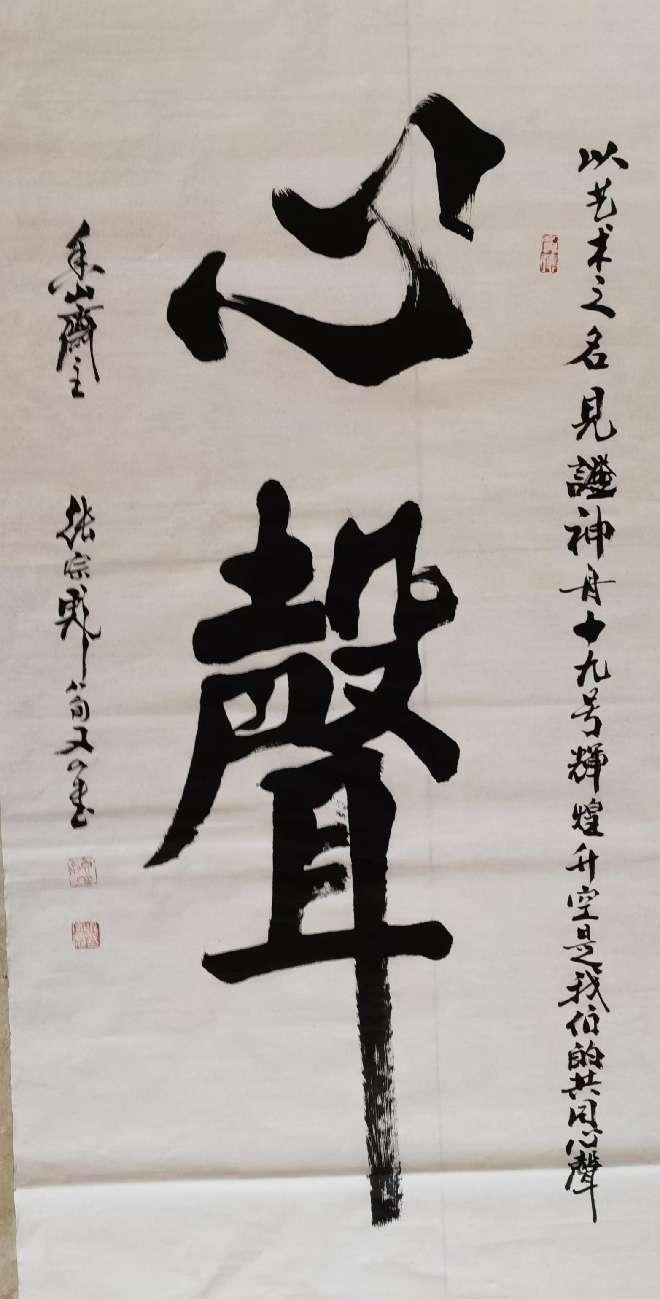 以艺术之名見證神舟十九号輝煌升空是我们的共同心聲
心聲
山齋主 張宗 八旬又 書